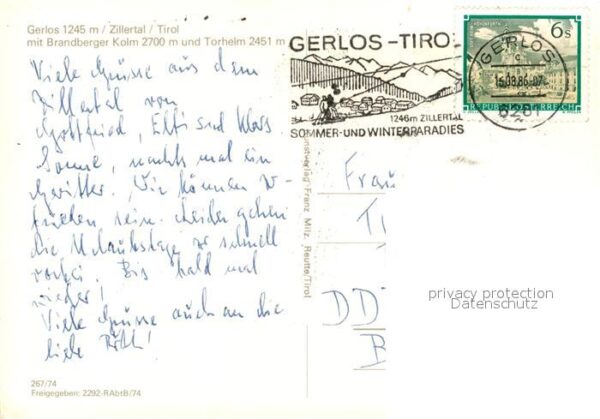 Gerlos 1245 m / Zillertal / Tirol
mit Brandberger Kolm 2700 m und Torhelm 2451 m
Viele Grüsse aus dem
Zillertal von
Gottfried, Elfi und Klaus
Sonne, nachts mal ein
Gewitter. Wir können zu-
frieden sein. Leider gehen
die Urlaubstage zu schnell
vorbei. Bis bald mal
wieder!
Viele Grüsse auch an die
liebe
267/74
Freigegeben: 2292-RAbtB/74
GERLOS-TIROL
1246m ZILLERTAL
SOMMER-UND WINTERPARADIES
6s
REPUBLIK ÖSTERREICH
GERLOS
15.08.86-07
6281
Kunstverlag Franz Milz, Reutte/Tirol
Frau
DD
privacy protection
Datenschutz